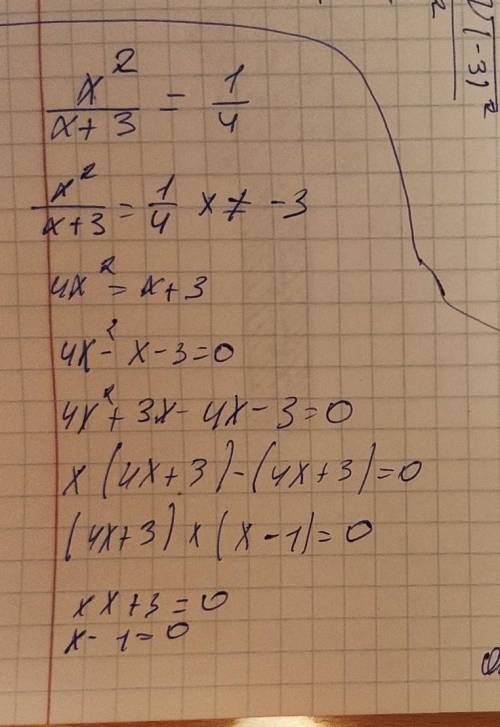 √(-3)²
2
x²/(x+3) = 1/4
x²/(x+3) = 1/4 x ≠ -3
4x² = x+3
4x² - x - 3 = 0
4x² + 3x - 4x - 3 = 0
x (4x+3) - (4x+3) = 0
(4x+3) x (x - 1) = 0
x x + 3 = 0
x - 1 = 0